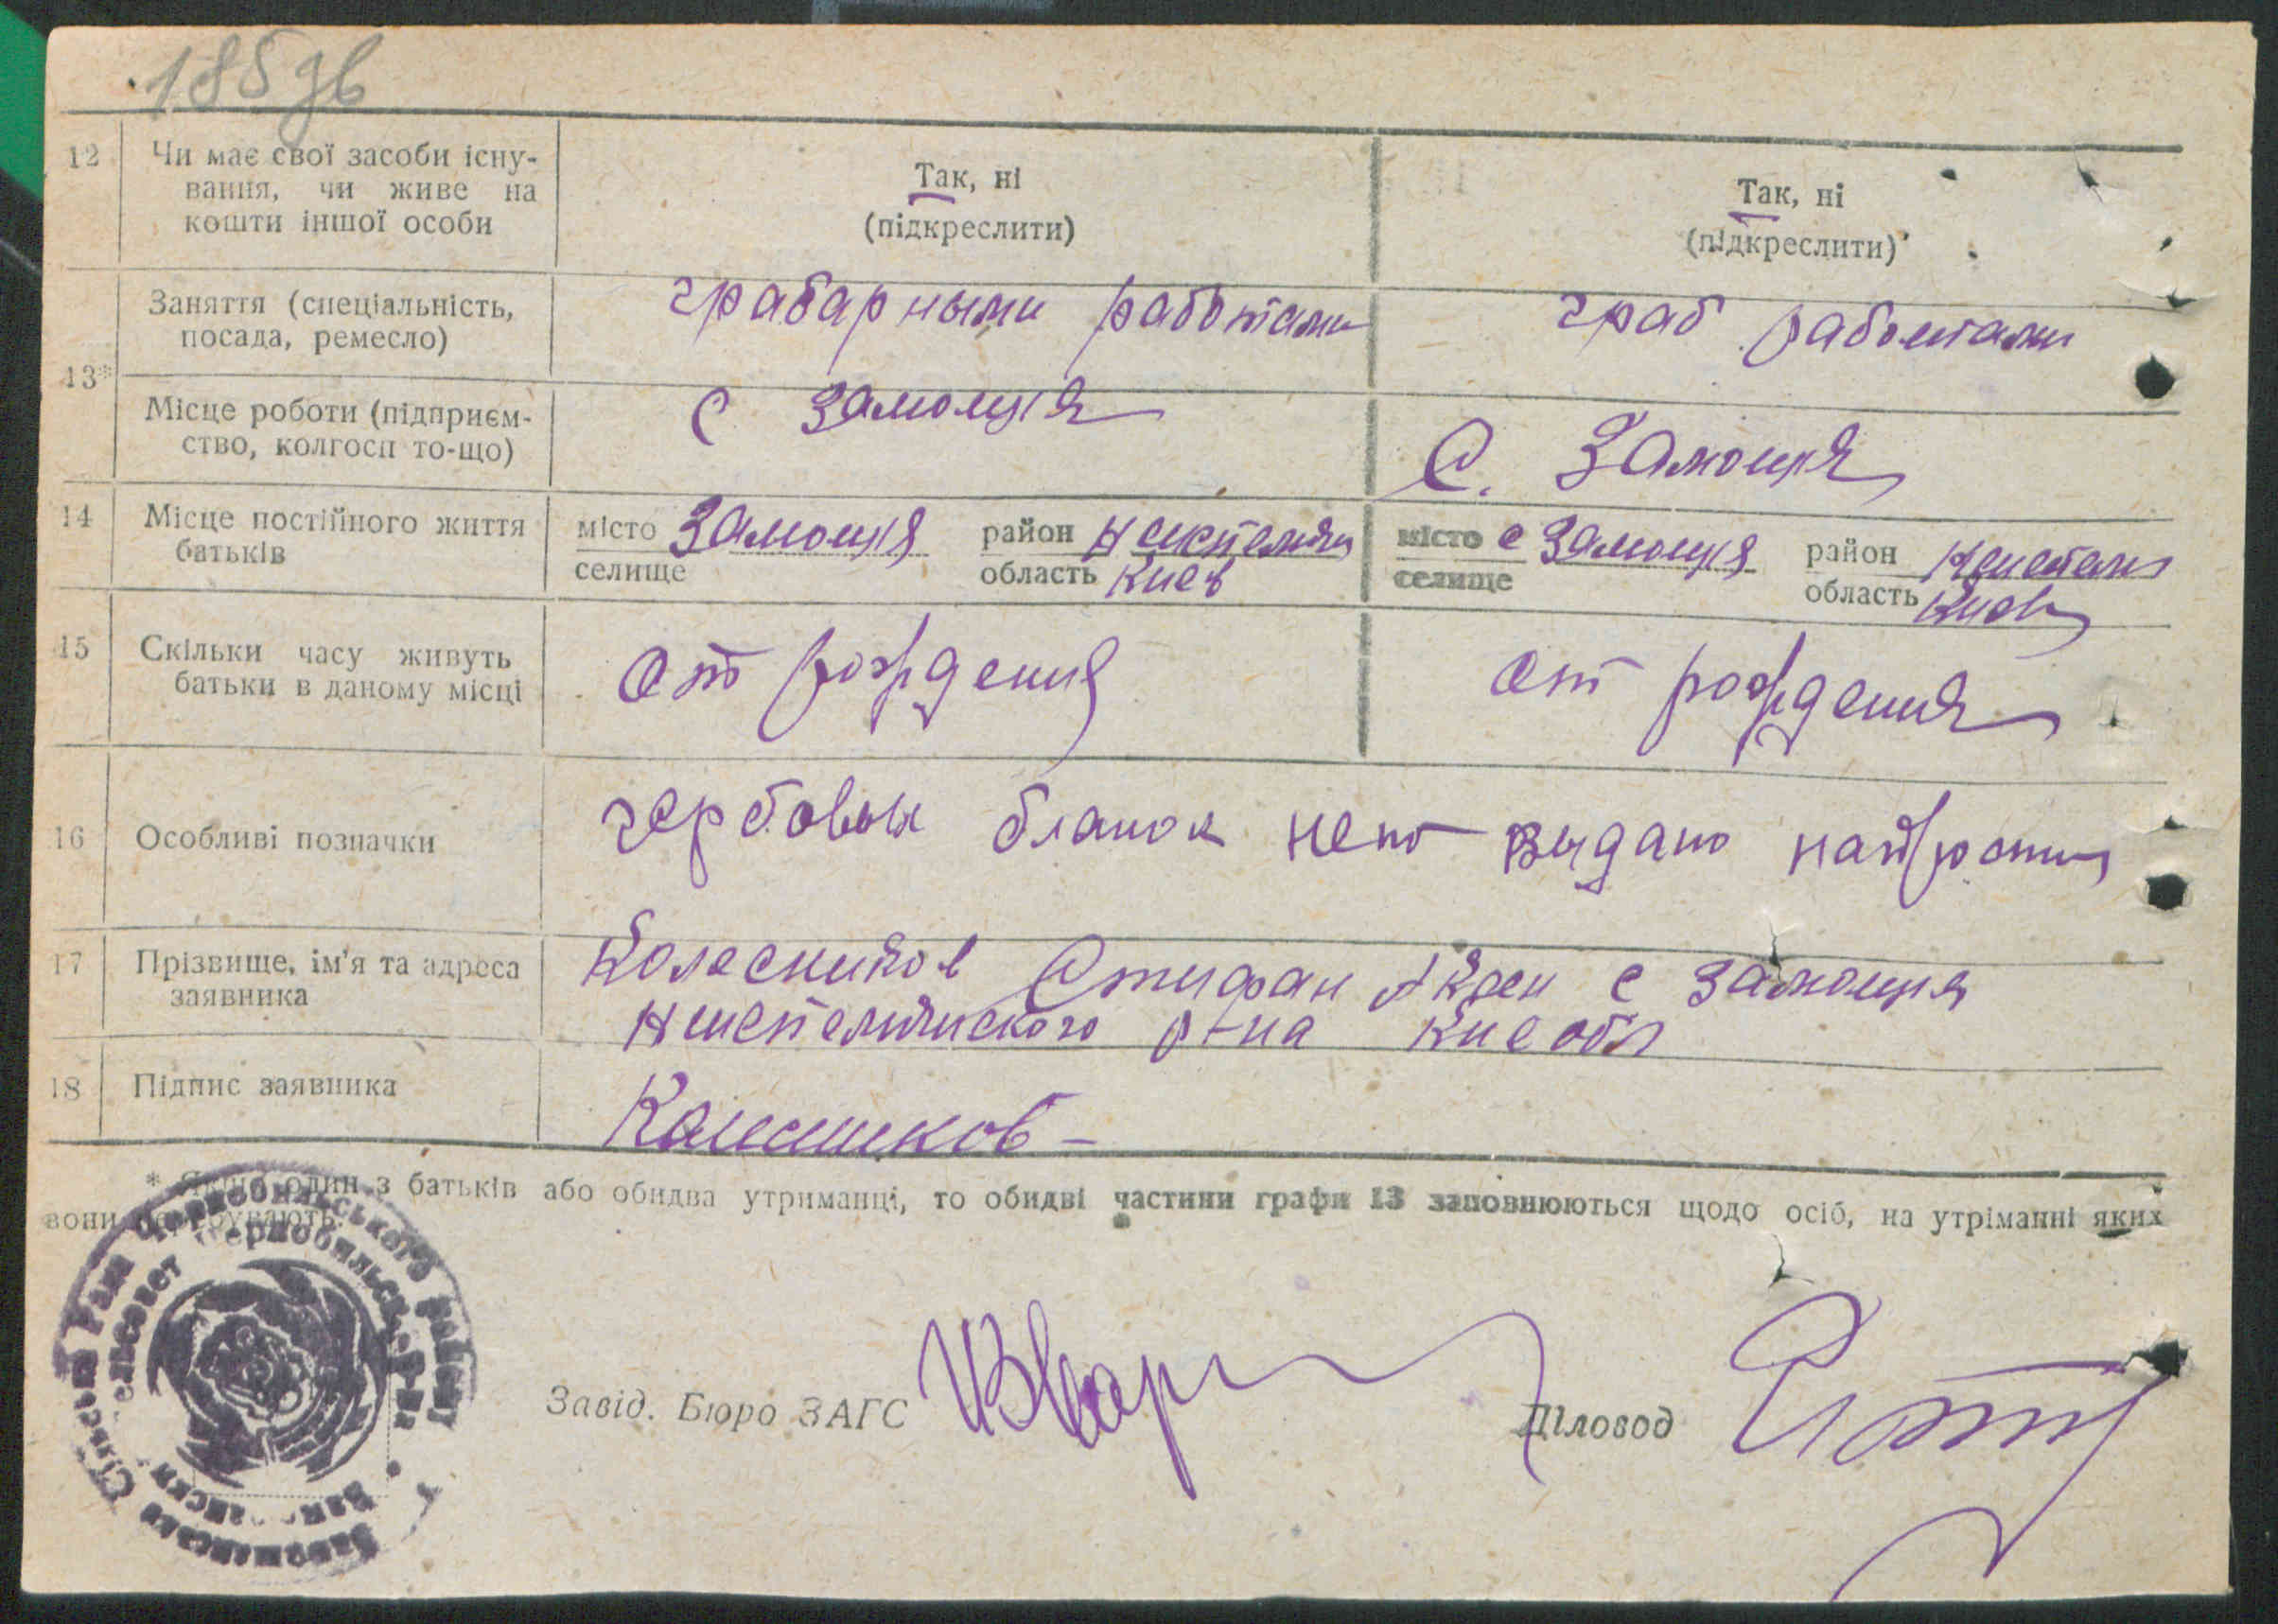 185 зв
12 Чи має свої засоби існу-
вання, чи живе на
кошти іншої особи
Так, ні
(підкреслити)
Так, ні
(підкреслити)
13*
Заняття (спеціальність,
посада, ремесло)
грабарными работами
граб работами
Місце роботи (підприєм-
ство, колгосп то-що)
с Замощня
С. Замощня
14 Місце постійного життя
батьків
місто Замощня район
селище область Киев
місто с Замощня район
селище область Киев
15 Скільки часу живуть
батьки в даному місці
от рождения
от рождения
16 Особливі позначки
гербовых бланок нет выдано
17 Прізвище, ім'я та адреса
заявника
Колесников с Замощня
р-на Кие обл
18 Підпис заявника
Колесников
* Якщо один з батьків або обидва утриманці, то обидві частини графи 13 заповнюються щодо осіб, на утріманні яких
вони перебувають.
Сільська Рада Чорнобильського району
Завід. Бюро ЗАГС
Діловод